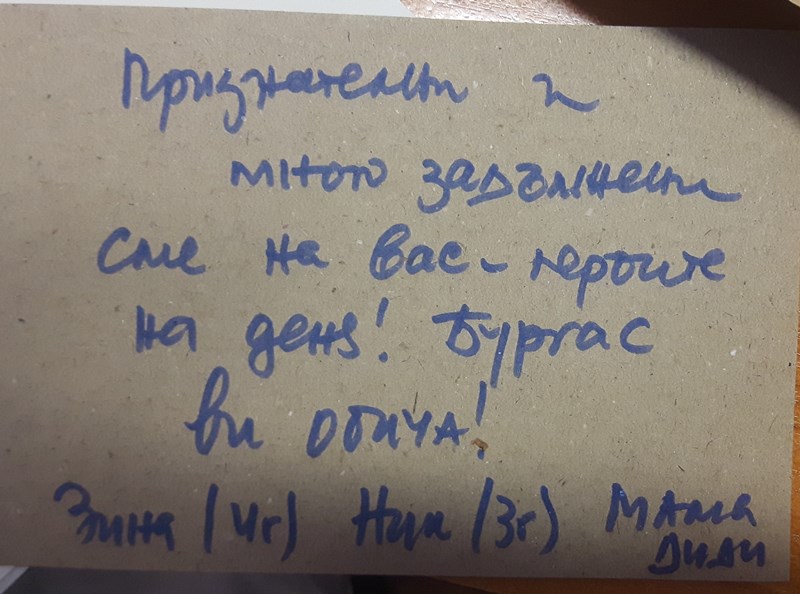 Признателни и
много задължени
сме на вас - героите
на деня! Бургас
ви обича!
Зина (4г) Ники (3г) Мама
Диди